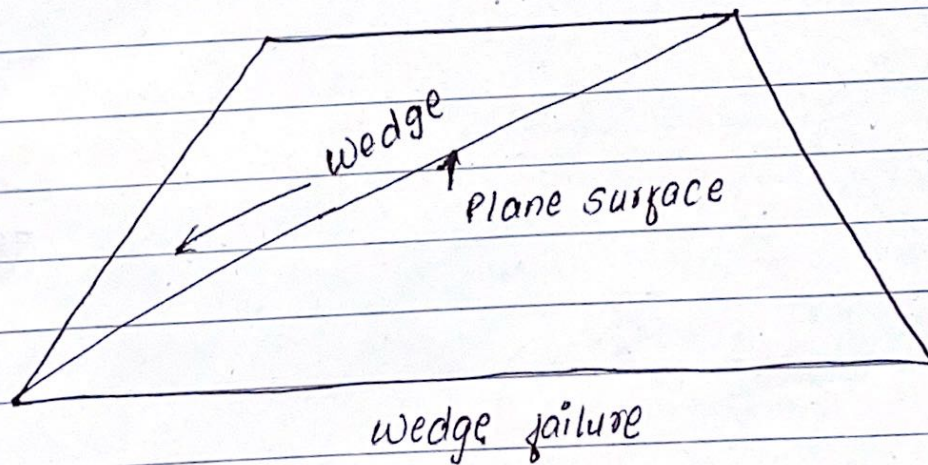 wedge
Plane surface
wedge failure